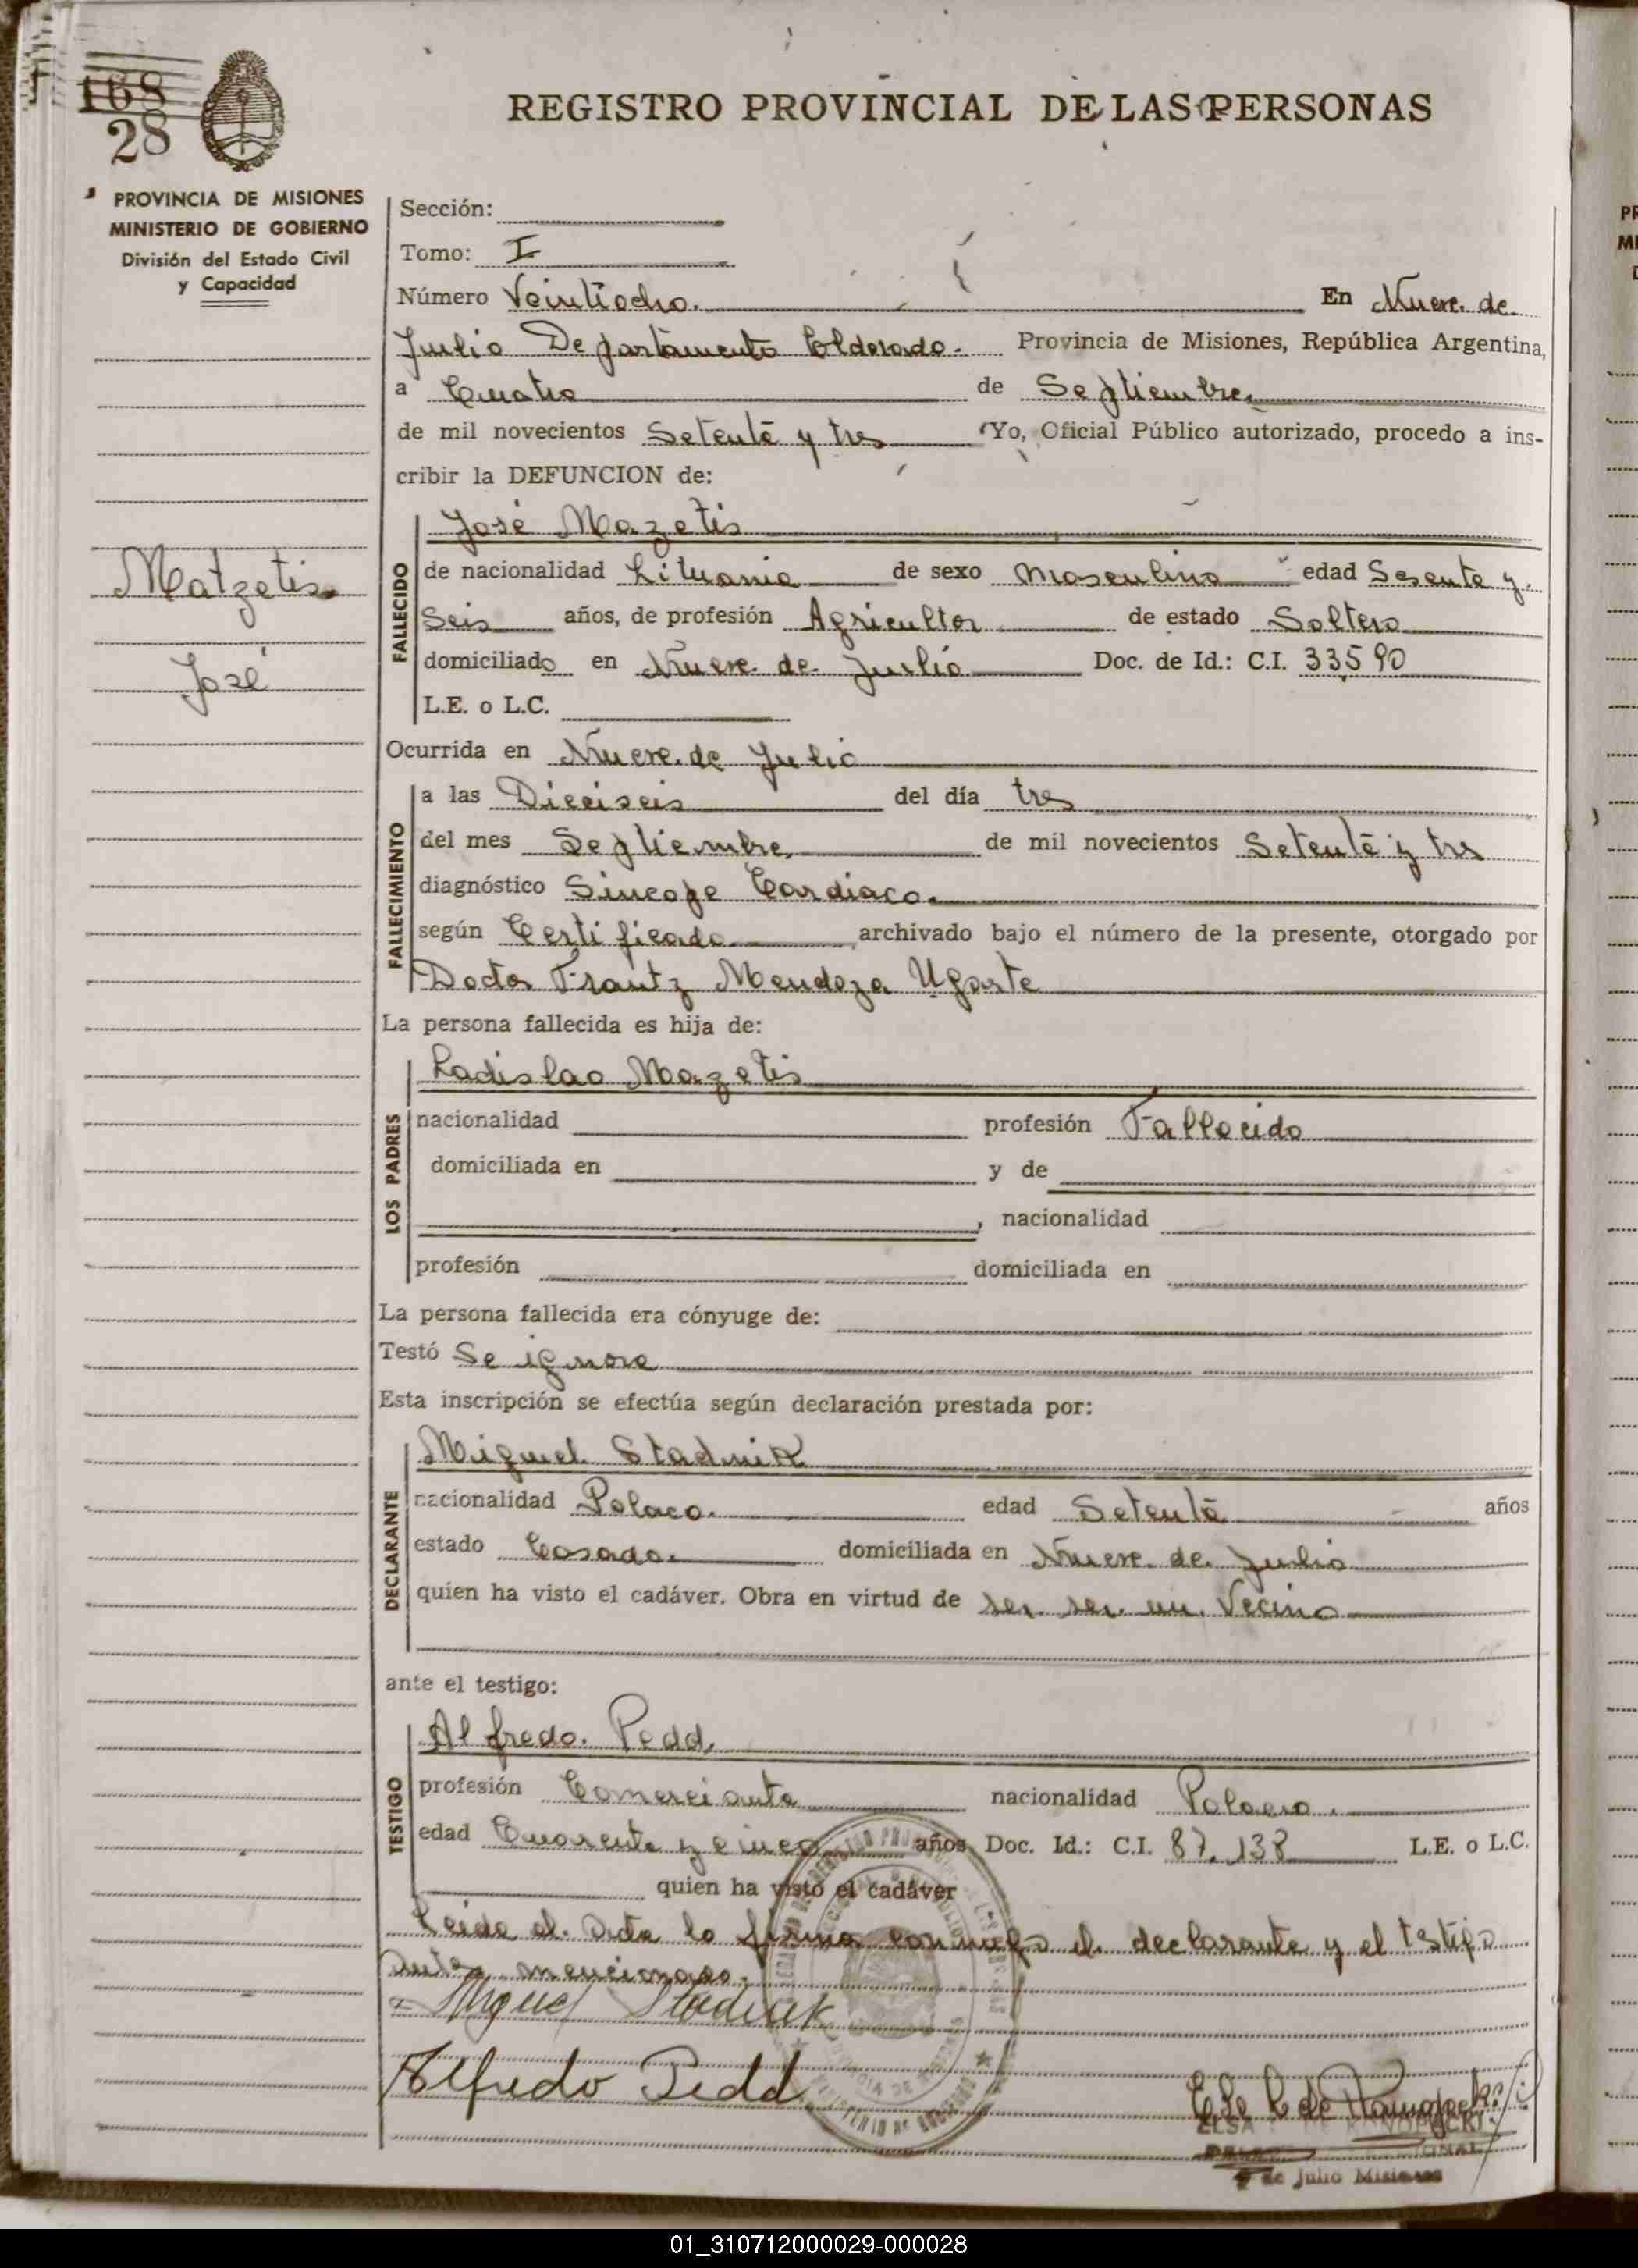 168
28
REGISTRO PROVINCIAL DE LAS PERSONAS
PROVINCIA DE MISIONES
MINISTERIO DE GOBIERNO
División del Estado Civil
y Capacidad
Matzetis
José
Sección:
Tomo: I
Número Veintiocho. En Nueve de
Julio Departamento Eldorado. Provincia de Misiones, República Argentina,
a Cuatro de Septiembre
de mil novecientos Setenta y tres Yo, Oficial Público autorizado, procedo a ins-
cribir la DEFUNCION de:
FALLECIDO
José Mazetis
de nacionalidad Lituania de sexo Masculino edad Sesenta y
Seis años, de profesión Agricultor de estado Soltero
domiciliado en Nueve de Julio Doc. de Id.: C.I. 33590
L.E. o L.C.
Ocurrida en Nueve de Julio
FALLECIMIENTO
a las Dieciseis del día tres
del mes Septiembre de mil novecientos Setenta y tres
diagnóstico Sincope Cardiaco.
según Certificado archivado bajo el número de la presente, otorgado por
Doctor Frantz Mendoza Ugarte
La persona fallecida es hija de:
LOS PADRES
Ladislao Mazetis
nacionalidad profesión Fallecido
domiciliada en y de
, nacionalidad
profesión domiciliada en
La persona fallecida era cónyuge de:
Testó Se ignora
Esta inscripción se efectúa según declaración prestada por:
DECLARANTE
Miguel Stadnik
nacionalidad Polaco. edad Setenta años
estado Casado. domiciliada en Nueve de Julio
quien ha visto el cadáver. Obra en virtud de ser ser un Vecino
ante el testigo:
TESTIGO
Alfredo Pedd
profesión Comerciante nacionalidad Polaco.
edad Cuarenta y cinco años, Doc. Id.: C.I. 87.138 L.E. o L.C.
quien ha visto el cadáver
Leida el Acta la firma conmigo el declarante y el testigo
antes mencionado.
Miguel Stadnik
Alfredo Pedd
ELSA
9 de Julio Misiones
01_310712000029-000028